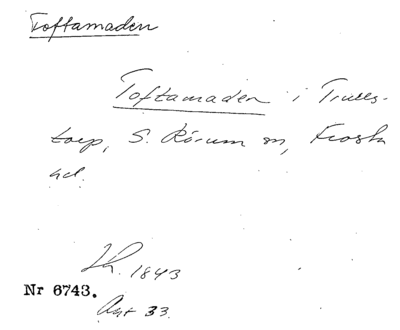 Toftamaden
Toftamaden i Trulls-
torp, S. Rörum sn, Frosta
hd.
Lh. 1843
Nr 6743.
Akt 33.